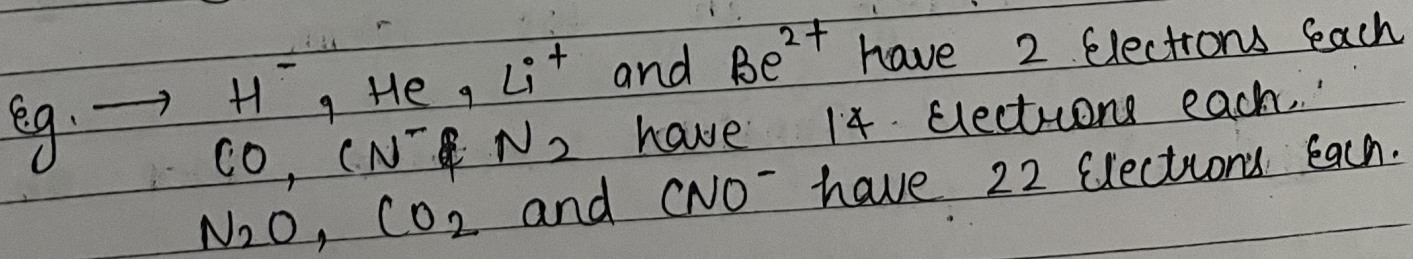 Eg. → H⁻, He, Li⁺ and Be²⁺ have 2 Electrons Each
CO, CN⁻ & N₂ have 14 Electrons each.
N₂O, CO₂ and CNO⁻ have 22 Electrons Each.